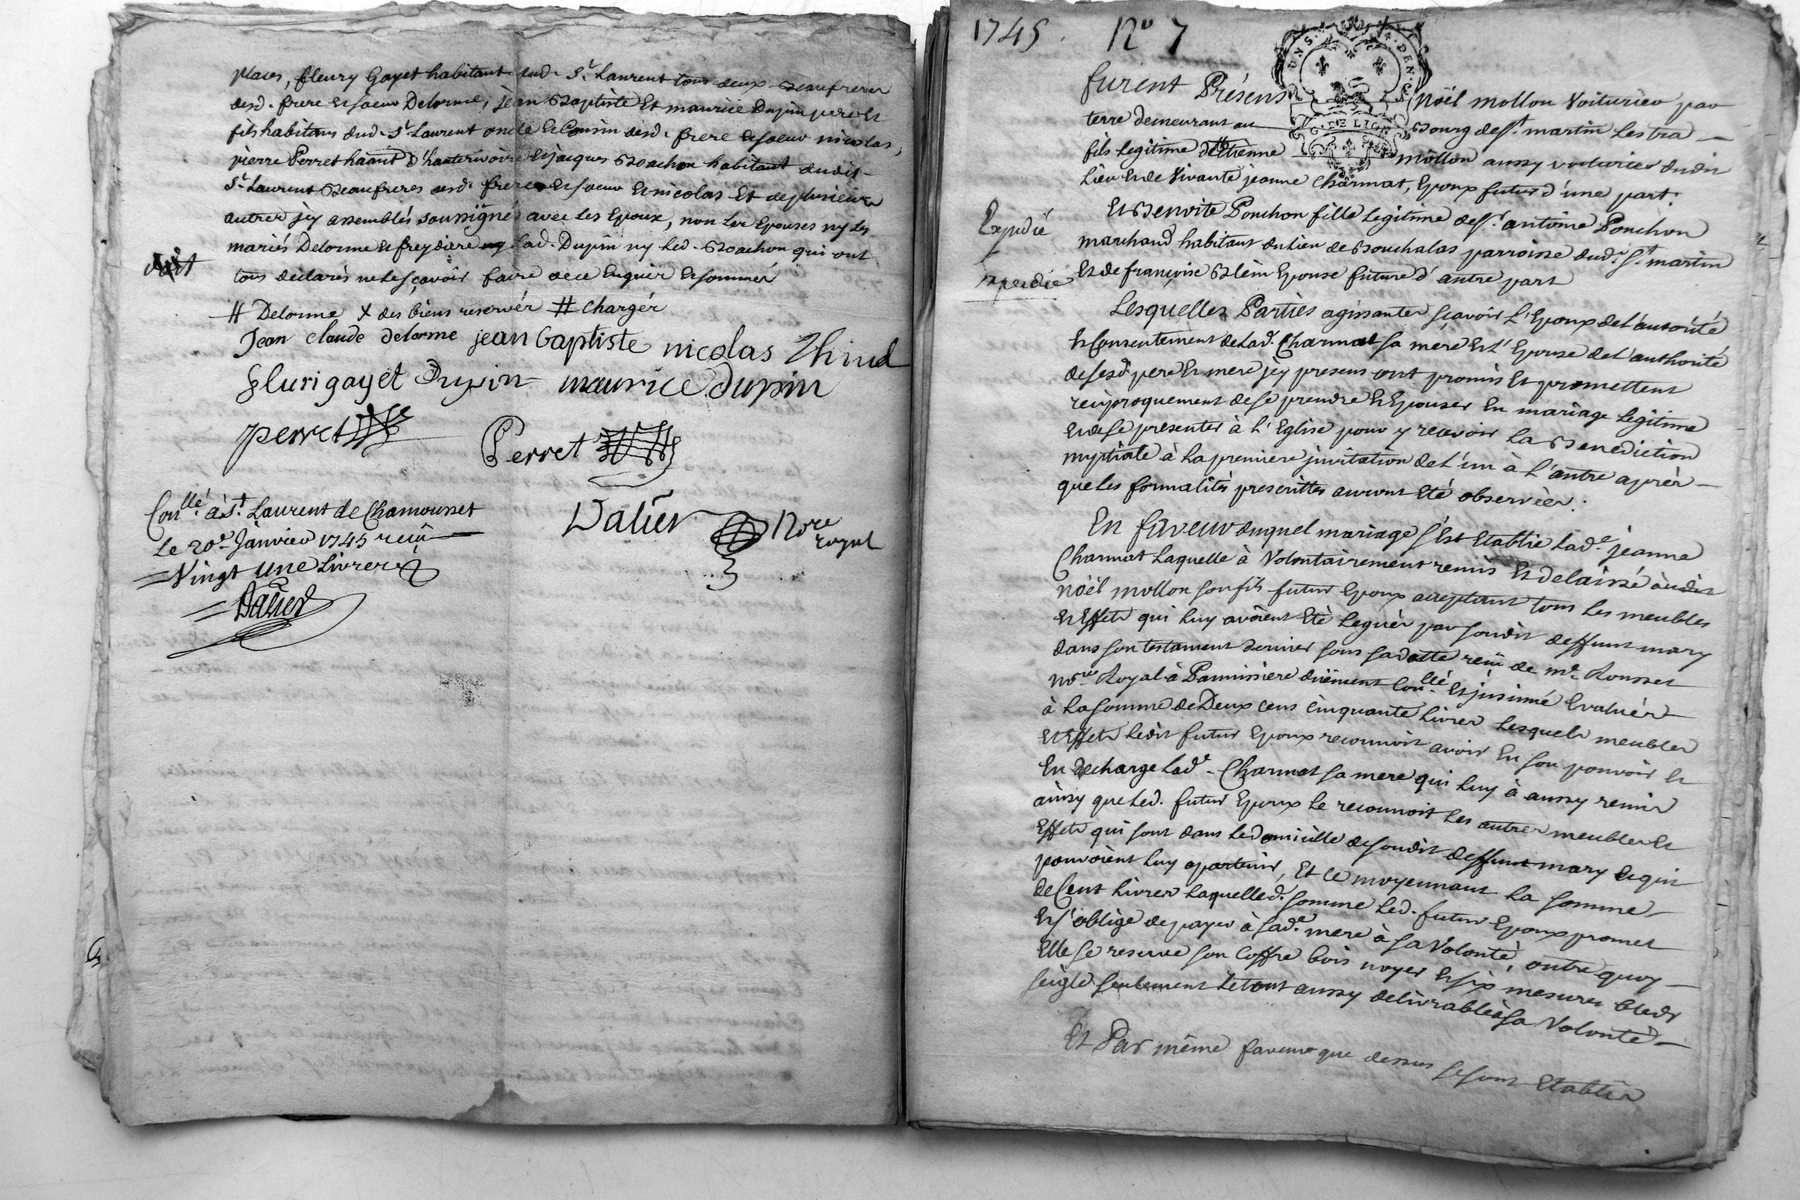 places, fleury Gayet habitant dud. St. Laurent tous deux beaufreres
desd. frere et soeur Delorme, jean Baptiste et maurice Dupin pere et
fils habitans dud. St. Laurent oncle et Cousin desd. frere et soeur nicolas,
pierre Perret habitant d'hauterivoire et jacques Boachon habitant dudit
St. Laurent beaufreres desd. frere et soeur et nicolas et de plusieurs
autres jcy assemblés soussignés avec les Epoux, non les Epouses ny les
mariés Delorme et freydiere ny lad. Dupin ny led. Boachon qui ont
tous déclarés ne le sçavoir faire de ce enquis et sommés
# Delorme X des biens reservés # chargés
Jean claude delorme jean baptiste nicolas
fleuri gayet Dupin maurice dupin
perret
Perret
Dalier Nore
royal
Conllé à St. Laurent de Chamousset
Le 20e Janvier 1745 reçu
Vingt une Livres
Dalier
1745. No 7
furent Présens Noël mollon Voiturier par
terre demeurant au Bourg de St. martin Lestra
fils legitime d'Etienne mollon aussy voiturier dudit
Lieu et de Vivante jeanne Charmat, Epoux futur d'une part.
Et Benoite Ponchon fille legitime de Sr. antoine Ponchon
marchand habitant du lieu de Bouchalas parroisse dud. St. martin
et de françoise Blein Epouse future d'autre part
Expedié
Expedié
Lesquelles Parties agissantes sçavoir L'Epoux de L'autorité
et Consentement de Lad. Charmat sa mere et L'Epouse de L'authorité
de sesd. pere et mere jcy presens ont promis et promettent
reciproquement de se prendre et Epouser en mariage legitime
et de se presenter à L'Eglise pour y recevoir La Benediction
nuptiale à La premiere jnvitation de L'un à L'autre aprés
que Les formalités prescrittes auront Eté observées.
En faveur duquel mariage s'est Etablie Lade. jeanne
Charmat Laquelle à Volontairement remis et delaissé audit
Noël mollon son fils futur Epoux acceptant tous Les meubles
et Effets qui Luy avoient Eté Legués par sondit deffunt mary
dans son testament dernier sous sa datte reçu de me. Rousset
nore Royal à Pannissiere düement Conllé et jnsinué Evalués
à La somme de Deux cens cinquante Livres Lesquels meubles
et Effets Ledit futur Epoux reconnoit avoir En son pouvoir et
En decharge Lade. Charmat sa mere qui Luy à aussy remis
ainsy que Led. futur Epoux Le reconnoit Les autres meubles et
Effets qui sont dans Le domicille de sondit deffunt mary et qui
pouvoient Luy apartenir, Et ce moyennant La somme
de Cent Livres Laquelle d. somme Led. futur Epoux promet
et s'oblige de payer à sade. mere à sa Volonté, outre quoy
Elle se reserve son Coffre bois noyer et six mesures bled
seigle seulement Le tout aussy delivrable à sa Volonté
Et Par même faveur que dessus se sont Etablis